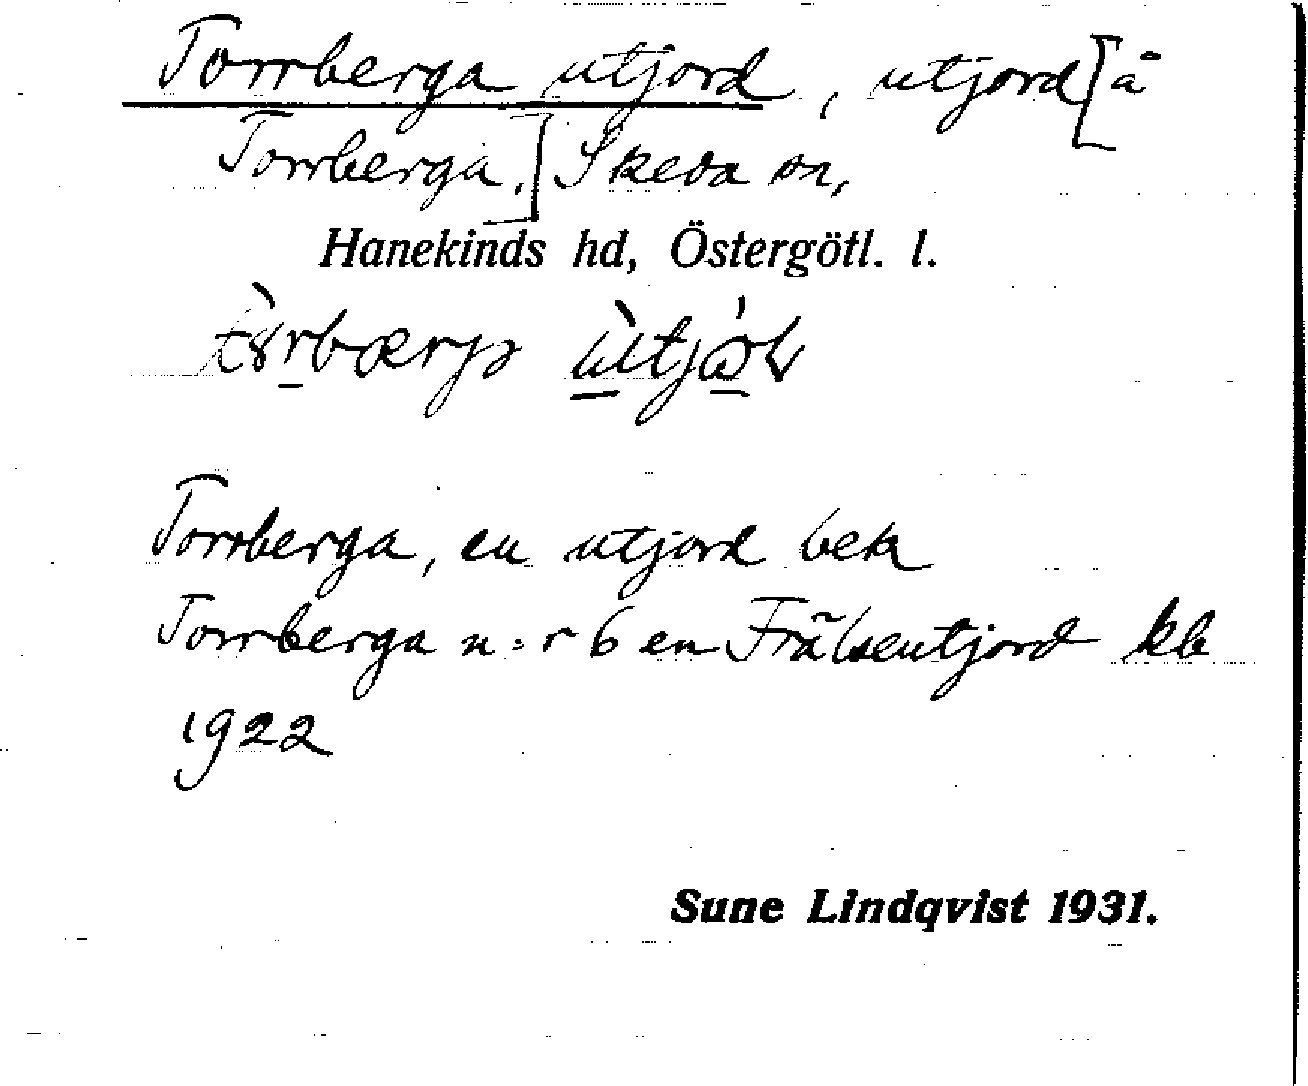 Torrberga utjord, utjord [å
Torrberga.] Skeda sn,
Hanekinds hd, Östergötl. l.
Torrberga, en utjord bek
Torrberga n:r 6 en Frälseutjord kb
1922
Sune Lindqvist 1931.